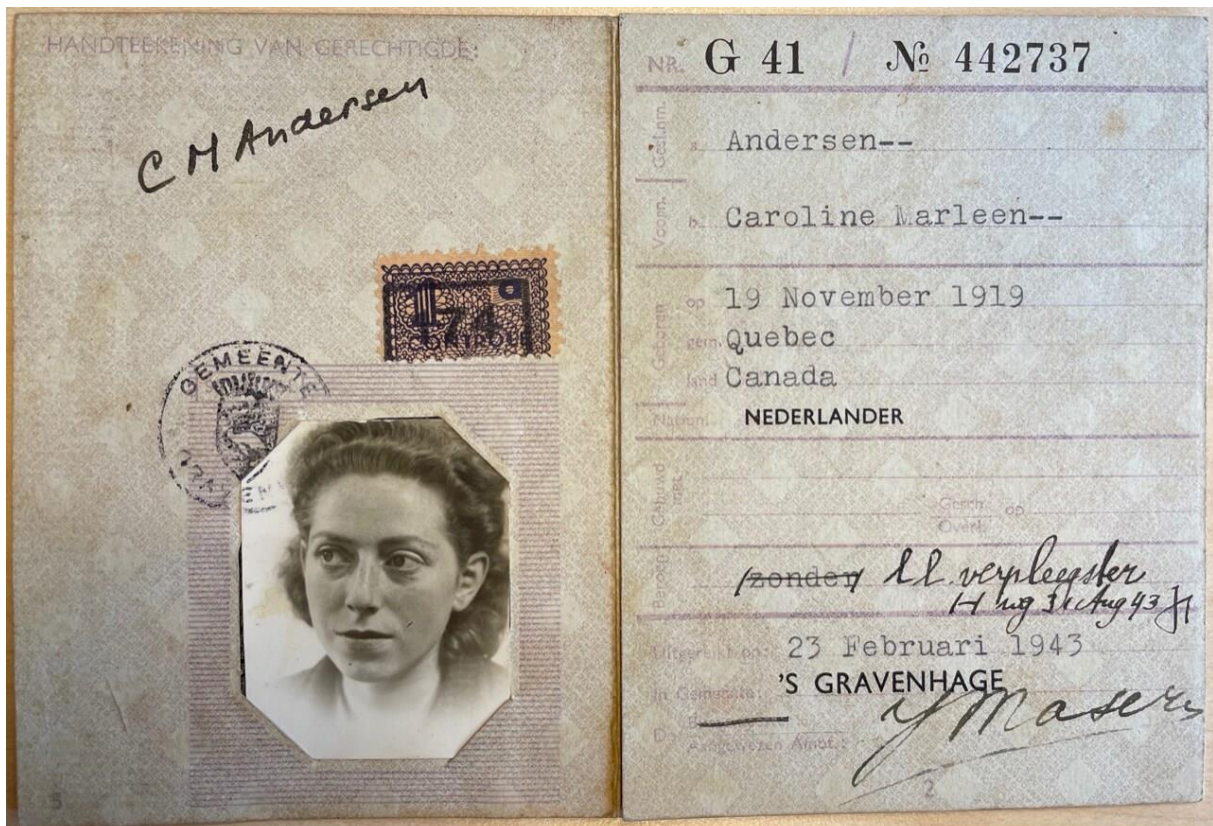 HANDTEEKENING VAN GERECHTIGDE:
C M Andersen
1 G
74
CONTROLE
GEMEENTE
5
NR. G 41 / № 442737
a. Andersen--
Voorn. b. Caroline Marleen--
Geboren op 19 November 1919
gem. Quebec
land Canada
Nation. NEDERLANDER
Gehuwd
Gesch. op
Overl.
Beroep (zonder) ll. verpleegster
31 Aug 43
Uitgereikt op: 23 Februari 1943
In Gemeente: 'S GRAVENHAGE
Aangewezen Ambt.:
2